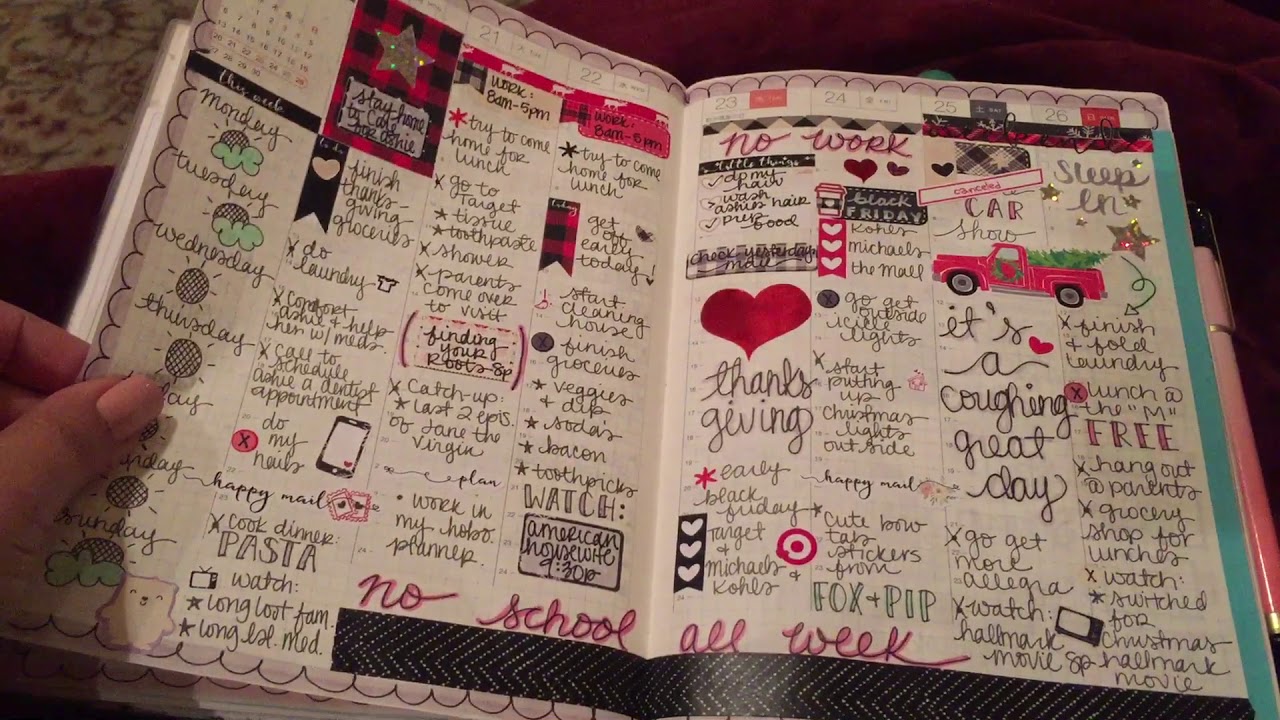 this week
Monday
Tuesday
Wednesday
Thursday
Sunday
stay home
finish
thanks-
giving
groceries
do
laundry
comfort
ashie & help
her w/ meds.
call to
schedule
ashie a dentist
appointment
do
my
nails
happy mail
cook dinner:
PASTA
watch:
long lost fam.
long isl. med.
21
WORK:
8am-5pm
try to come
home for
lunch
go to
target
tissue
toothpaste
shower
parents
come over
to visit
finding
your
roots 8p
catch-up:
last 2 epis.
of Jane the
virgin
plan
work in
my hobo.
planner.
22
WORK:
8am-5pm
try to come
home for
lunch
today
get
off
early
today!
start
cleaning
house
finish
groceries
veggies
& dip
sodas
bacon
toothpicks
WATCH:
american
housewife
9:30p
no school
23
no work
little things
do my
hair
wash
ashies hair
prep
food
check yesterday
mail
thanks
giving
early
black
friday
Target
michaels &
Kohls
24
black
FRIDAY
Kohls
michaels
the mall
go get
outside
icicle
lights
start
putting
up
christmas
lights
outside
happy mail
cute bow
tab
stickers
from
FOX + PIP
25
canceled
CAR
show
it's
a
coughing
great
day
go get
more
allegra
watch:
hallmark
movie 8p
26
SLEEP
In
finish
& fold
laundry
lunch @
the "M"
FREE
hang out
@ parents
grocery
shop for
lunches
watch:
switched
for
christmas
hallmark
movie
all week